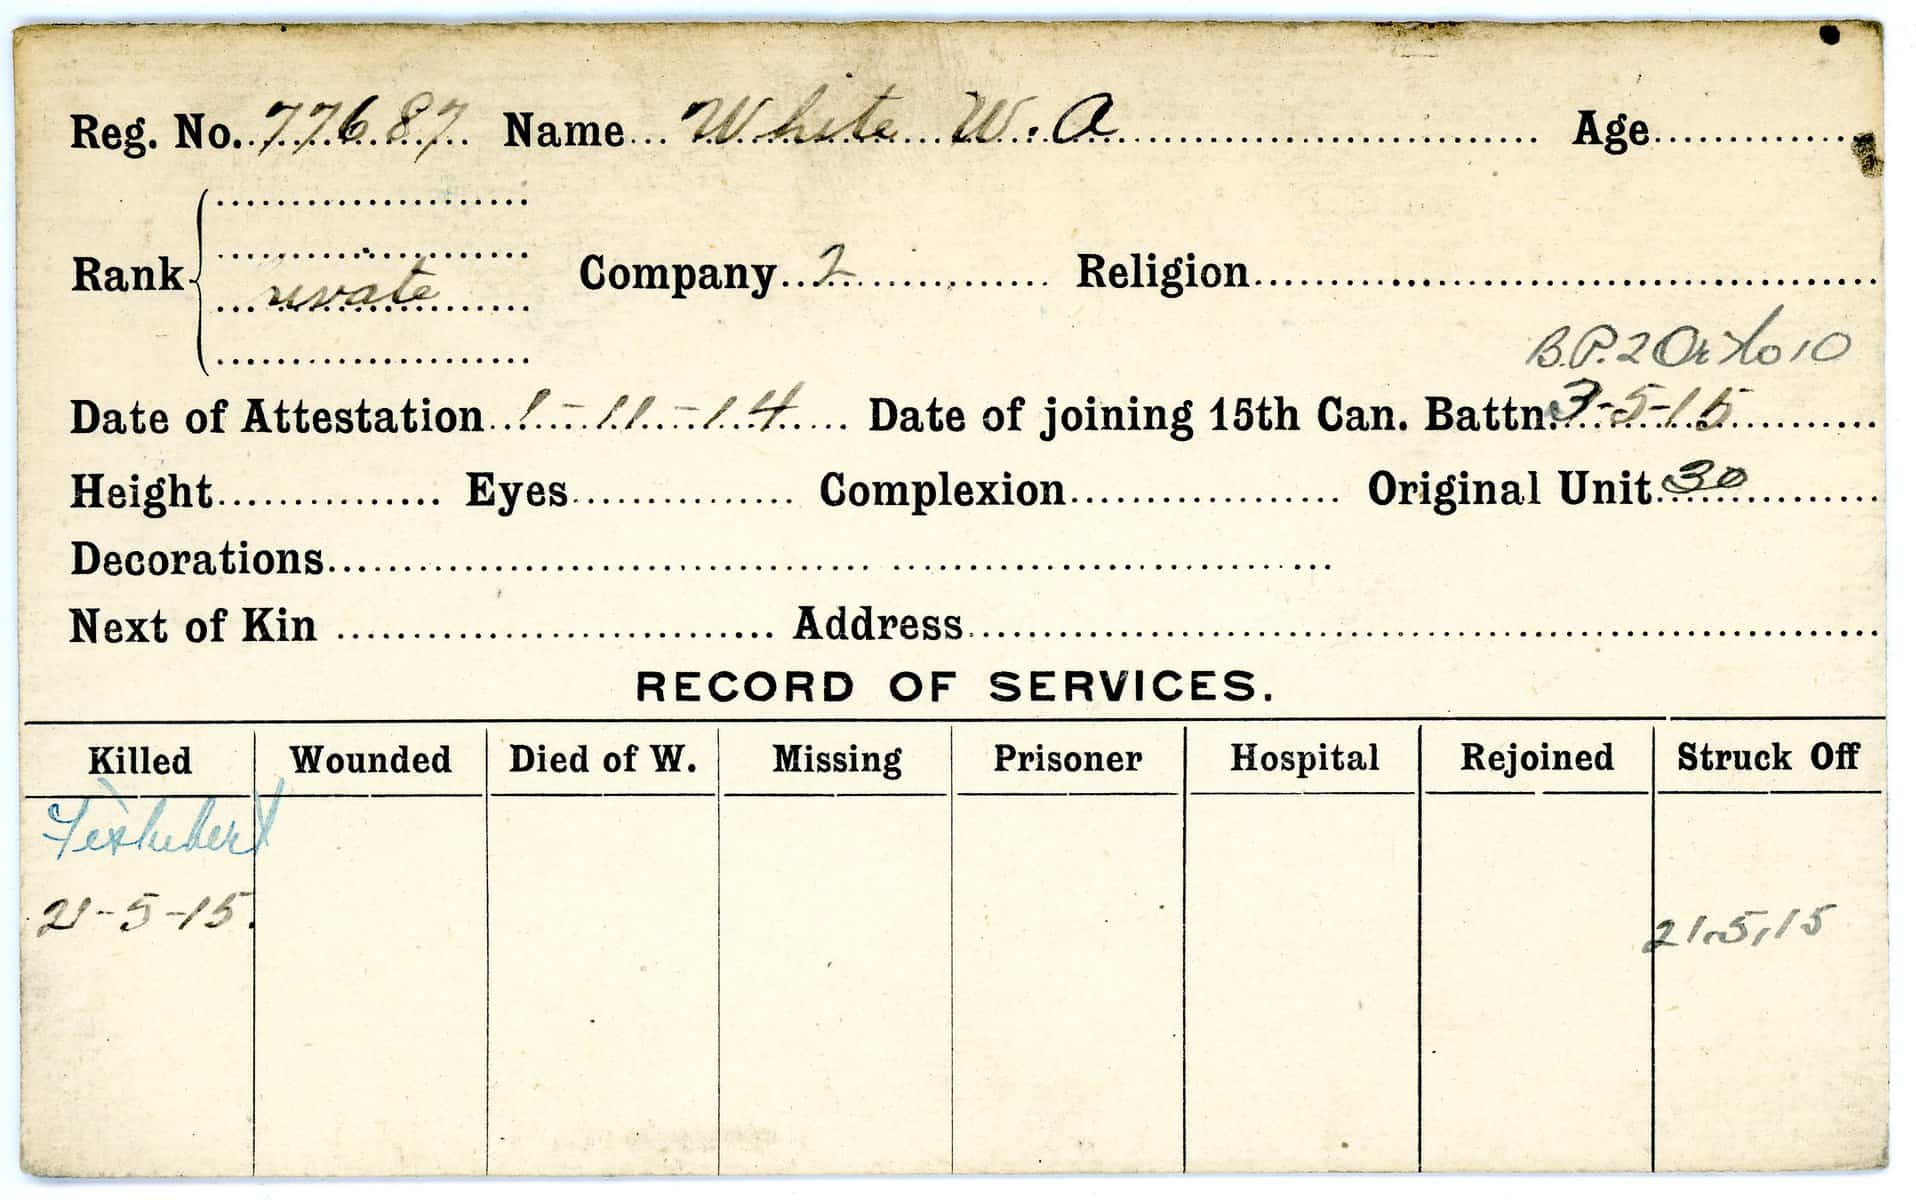 Reg. No. 77687 Name White W. A Age
Rank Private Company 2 Religion
B.P. 2 Or to 10
Date of Attestation 1-11-14 Date of joining 15th Can. Battn. 3-5-15
Height Eyes Complexion Original Unit 30
Decorations
Next of Kin Address
RECORD OF SERVICES.
Killed Wounded Died of W. Missing Prisoner Hospital Rejoined Struck Off
Festubert
21-5-15. 21.5.15